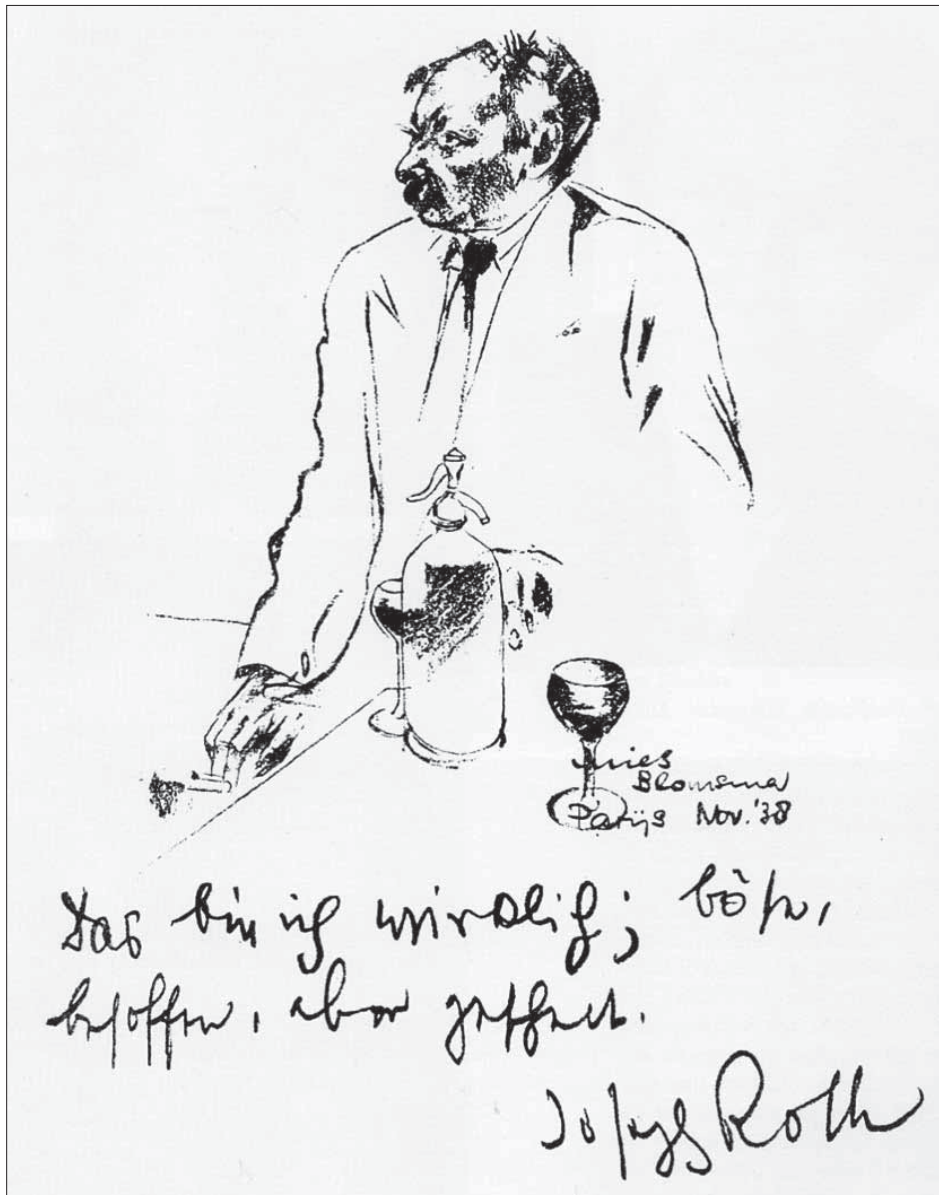 Mies
Blomsma
Parijs Nov. '38
Das bin ich wirklich; böse,
besoffen, aber gescheit.
Joseph Roth